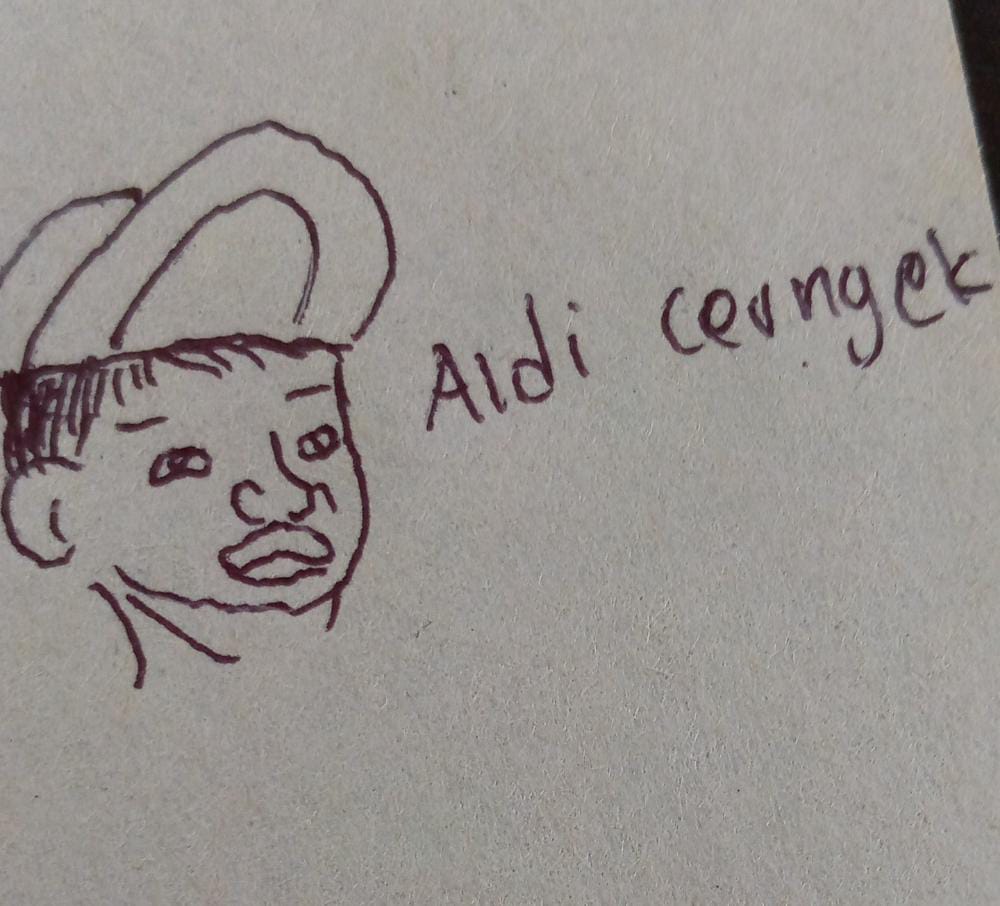 Aldi cerngek